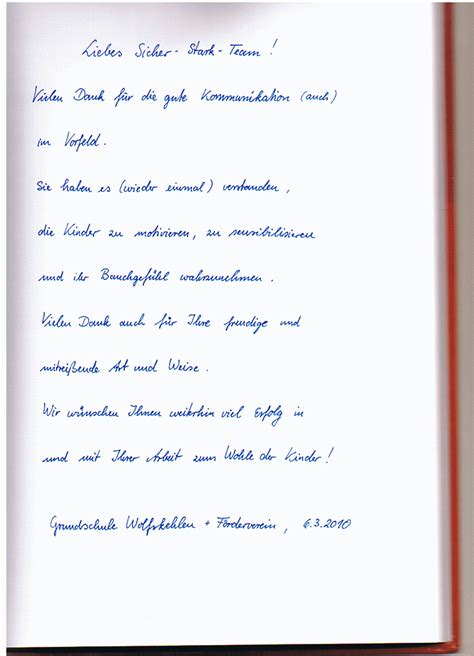 Liebes Sicher-Stark-Team!
Vielen Dank für die gute Kommunikation (auch)
im Vorfeld.
Sie haben es (wieder einmal) verstanden,
die Kinder zu motivieren, zu sensibilisieren
und ihr Bauchgefühl wahrzunehmen.
Vielen Dank auch für Ihre freudige und
mitreißende Art und Weise.
Wir wünschen Ihnen weiterhin viel Erfolg in
und mit Ihrer Arbeit zum Wohle der Kinder!
Grundschule Wolfskehlen + Förderverein, 6.3.2010